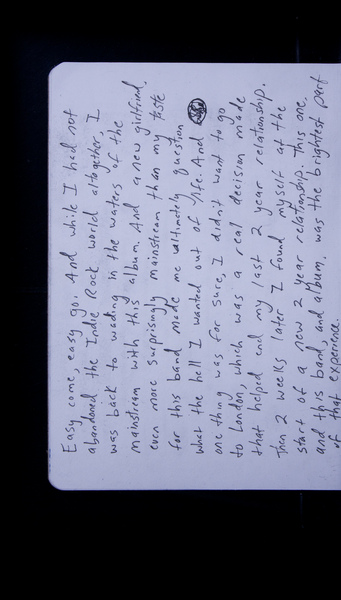 Easy come, easy go. And while I had not
abandoned the Indie Rock world altogether, I
was back to wading in the waters of the
mainstream with this album. And a new girlfriend,
even more surprisingly mainstream than my taste
for this band made me ultimately question
what the hell I wanted out of life. And
one thing was for sure, I didn't want to go
to London, which was a real decision made
that helped end my last 2 year relationship.
Then 2 weeks later I found myself at the
start of a new 2 year relationship. This one,
and this band, and album, was the brightest part
of that experience.